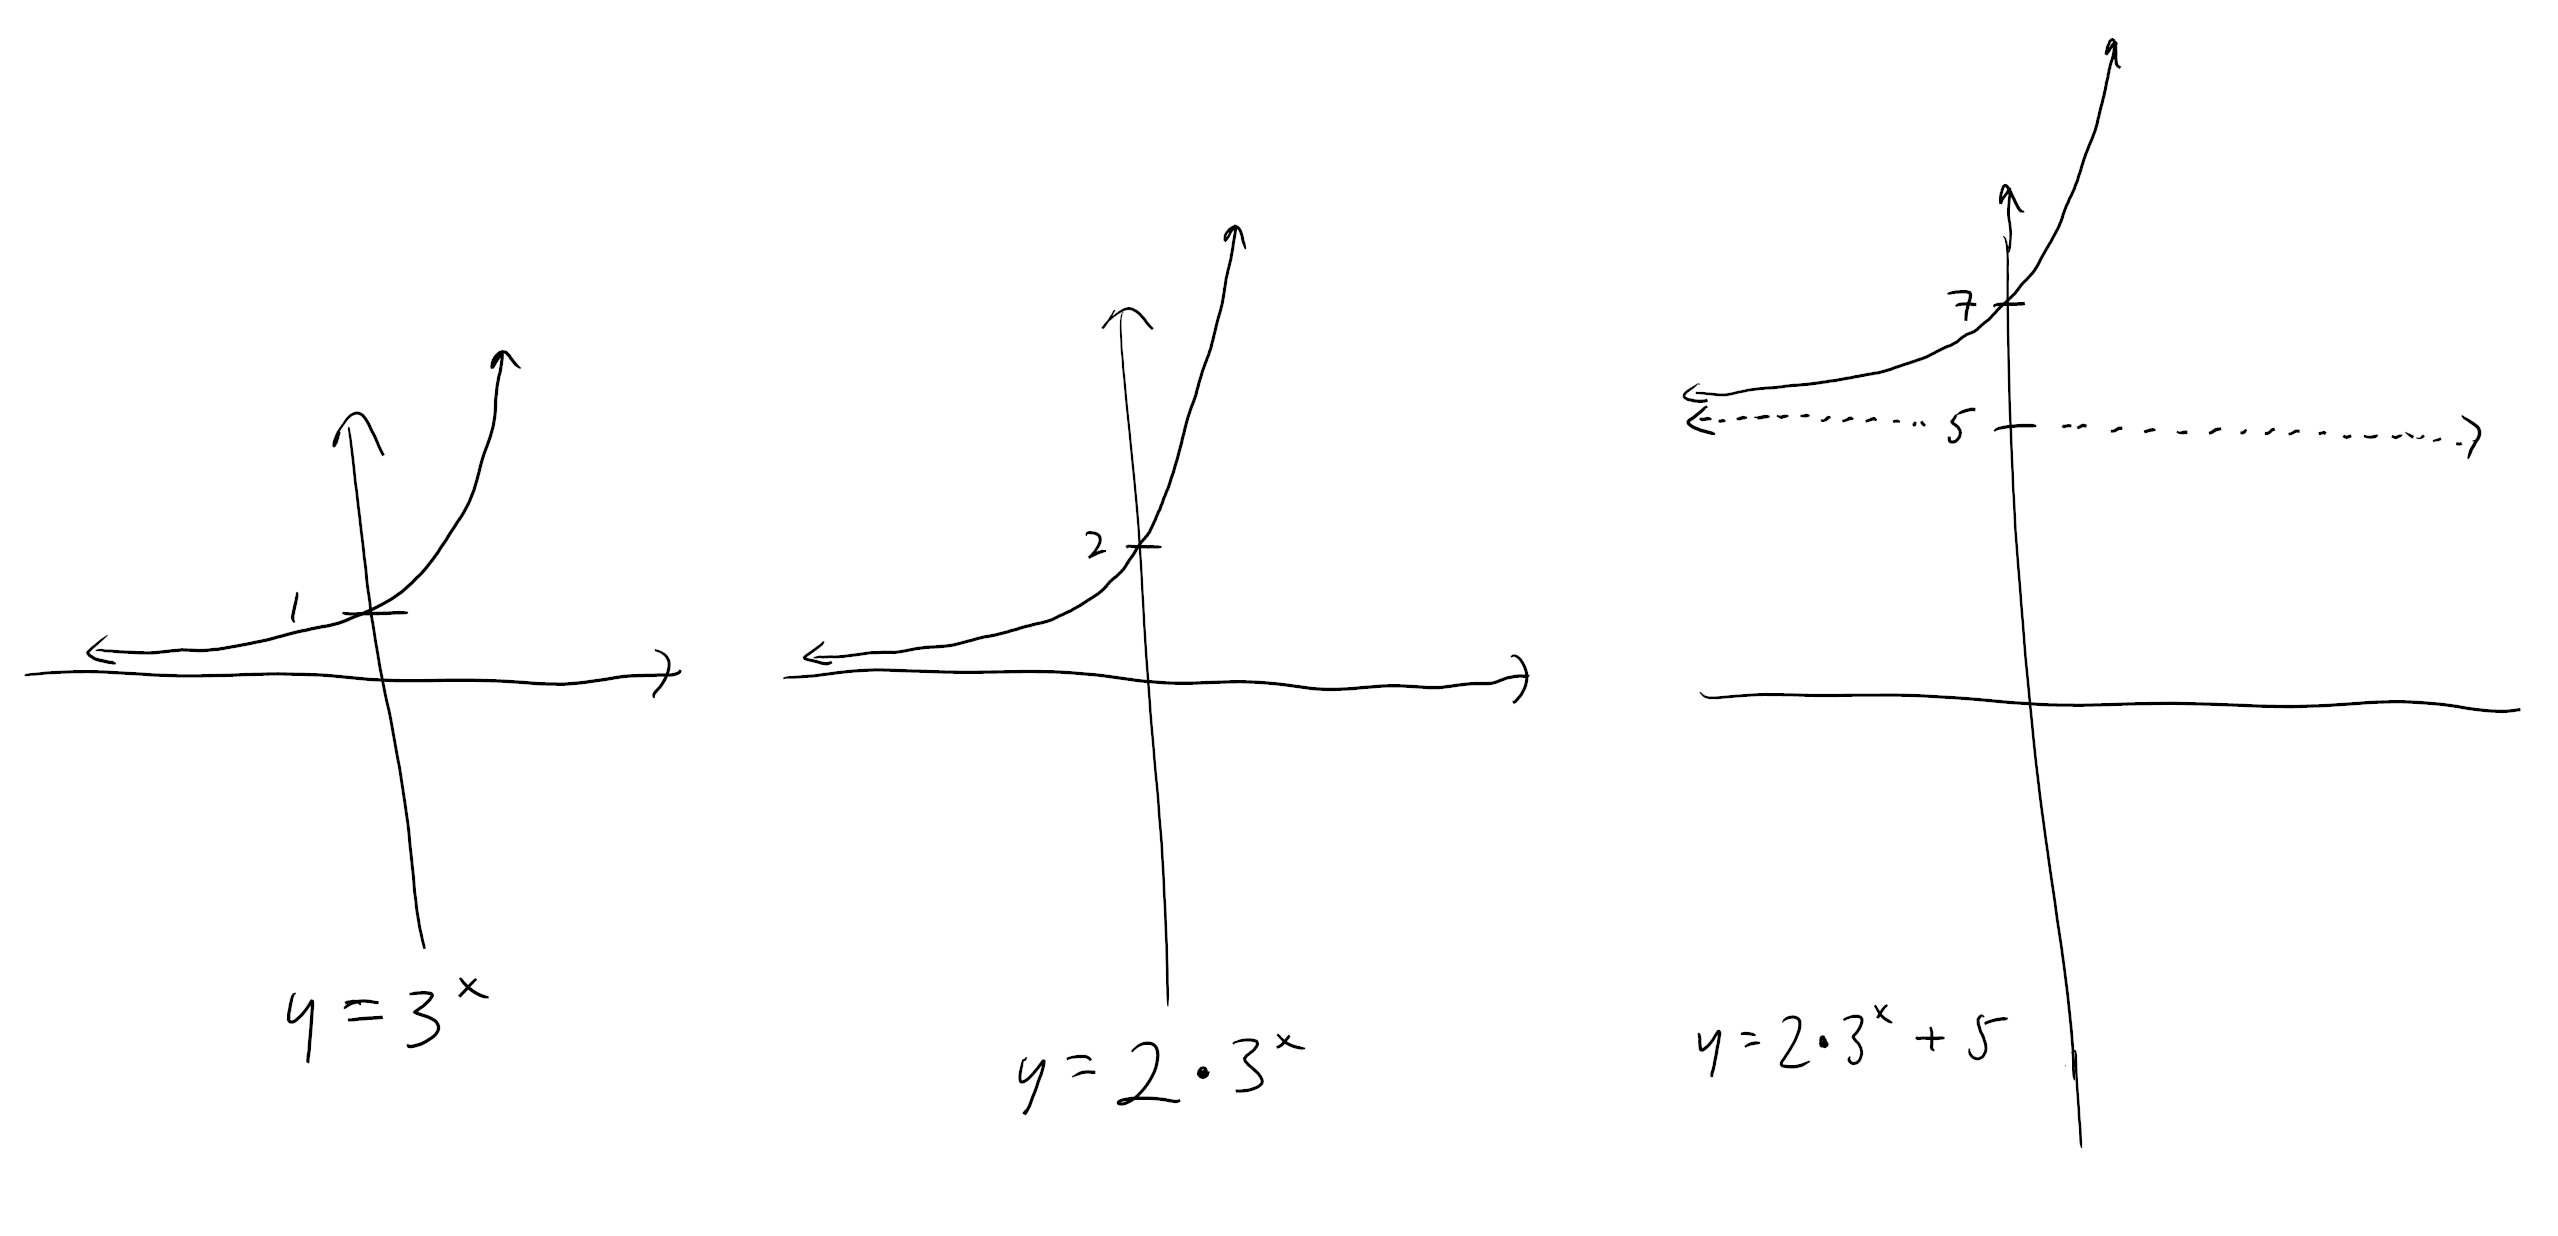 1
y = 3^x
2
y = 2 · 3^x
7
5
y = 2 · 3^x + 5